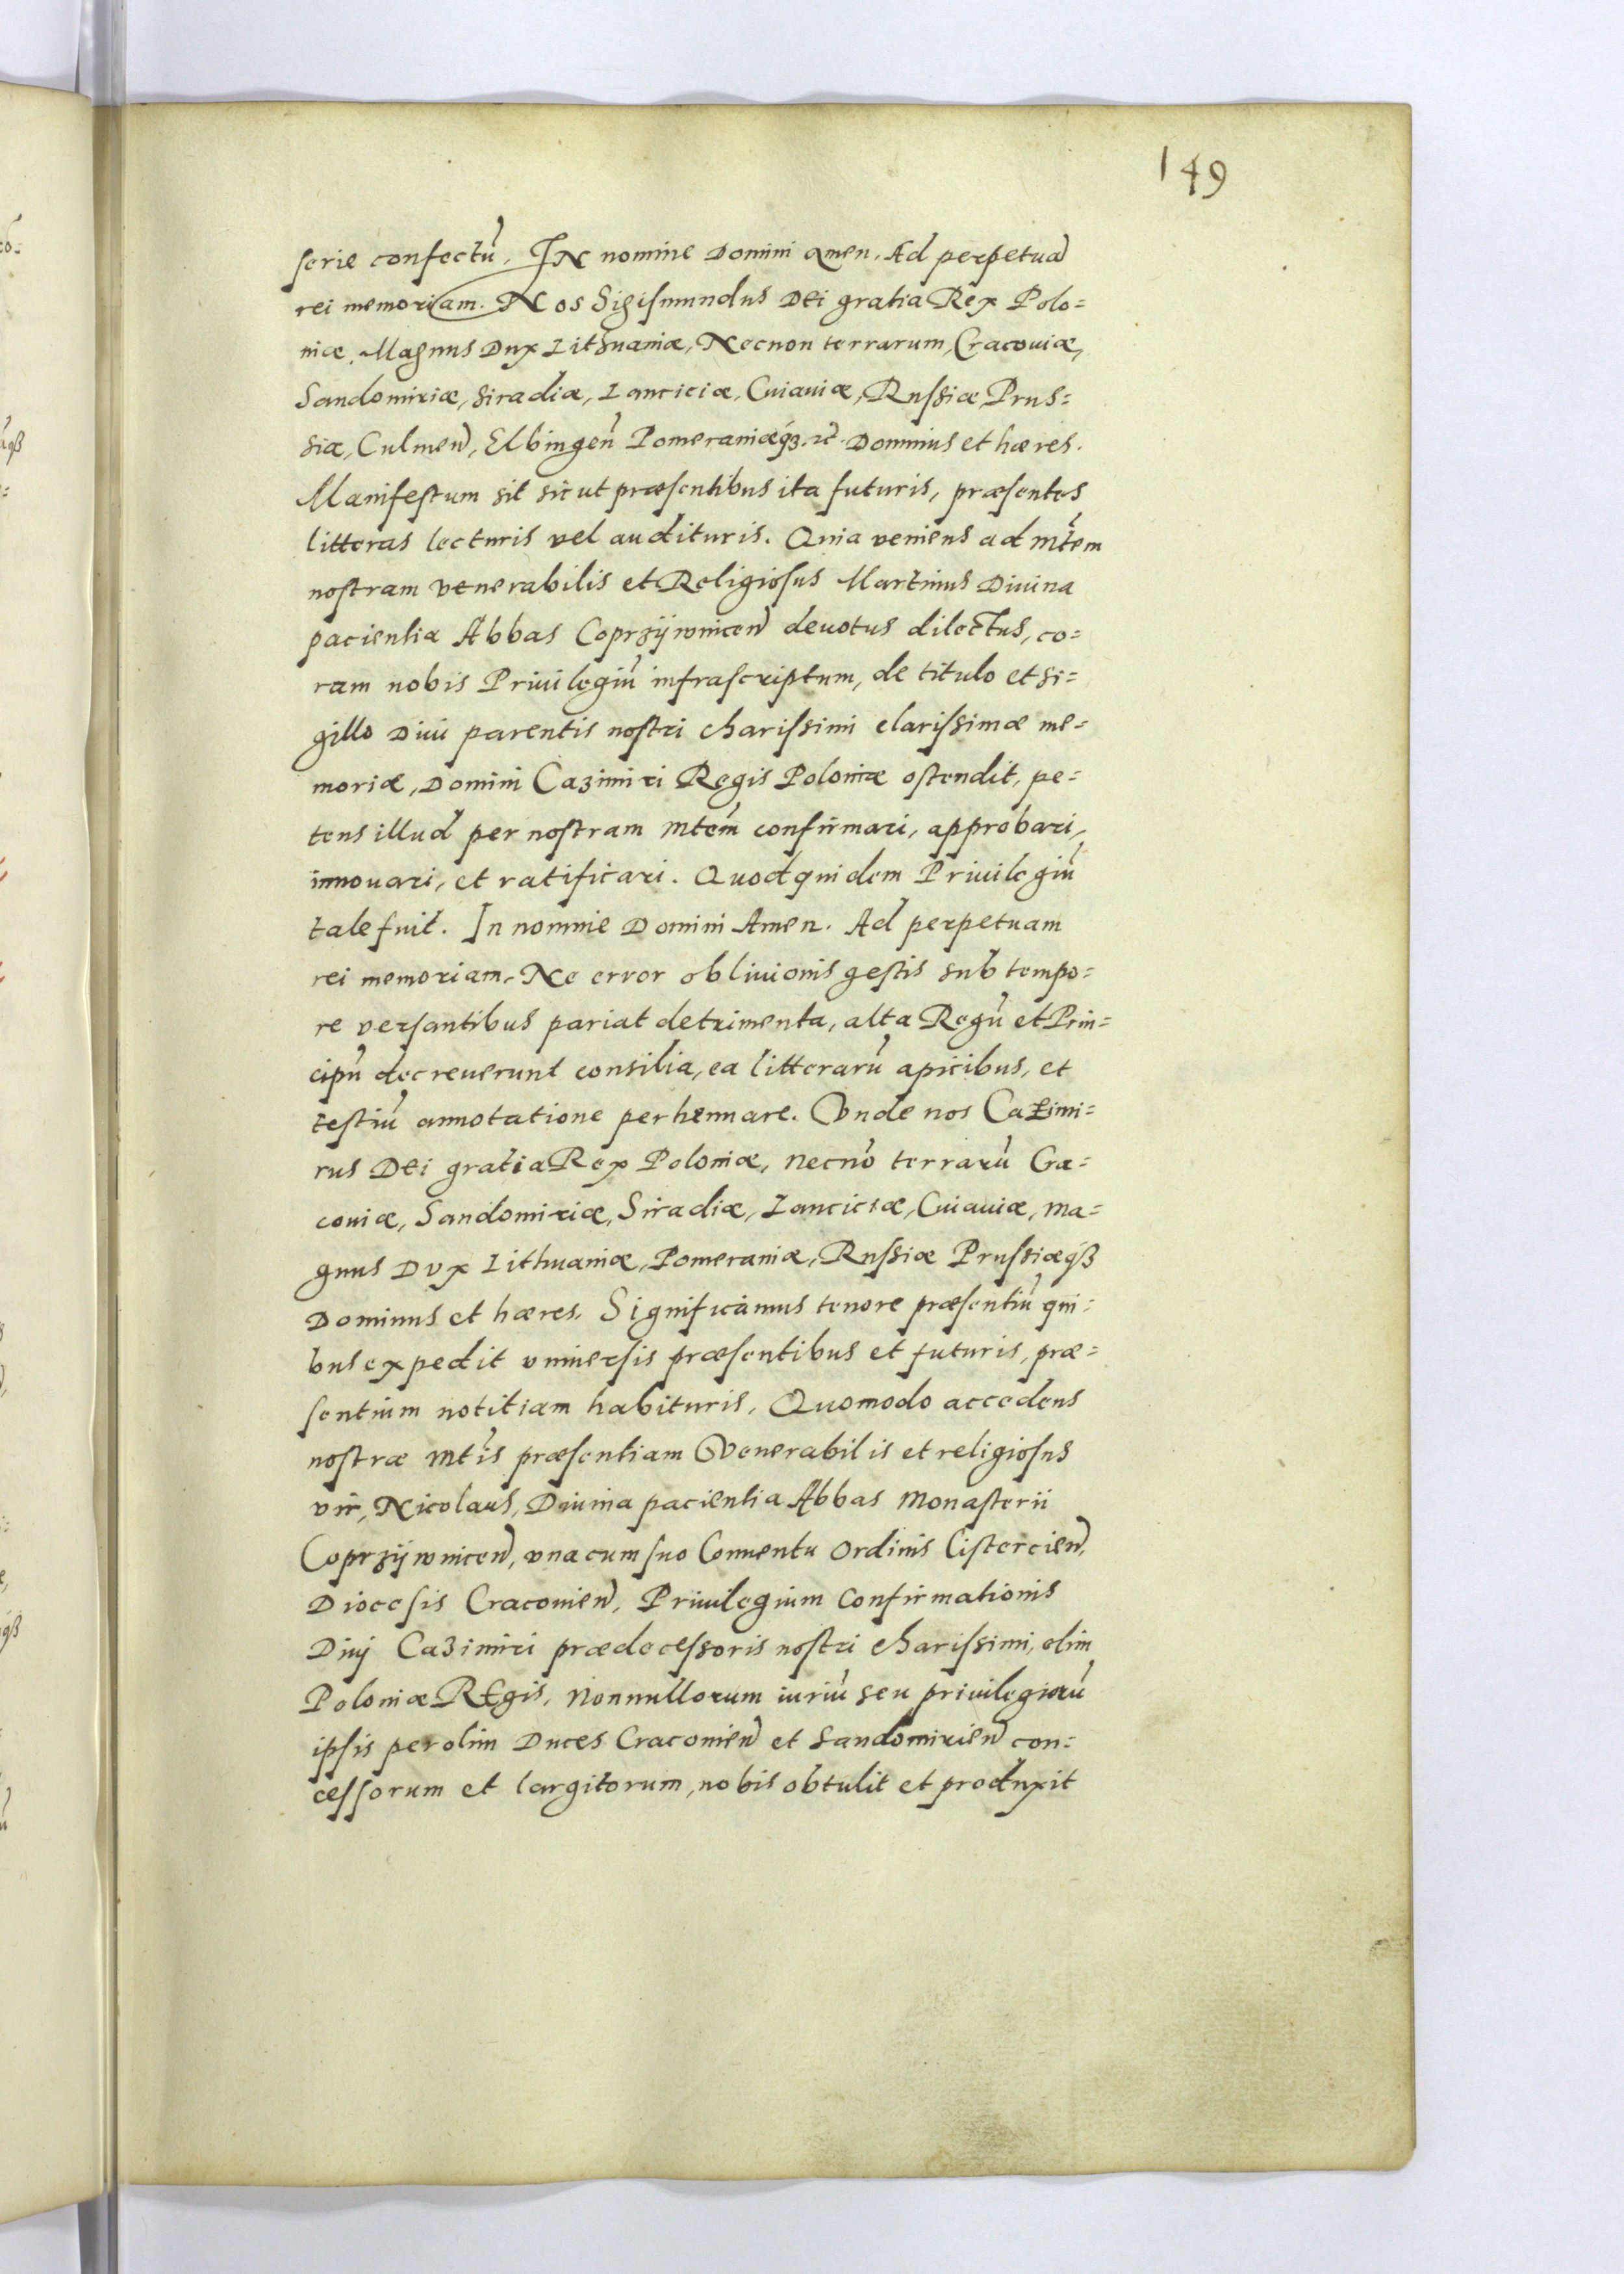 149
serie confectũ. IN nomine Domini Amen. Ad perpetuã
rei memoriam. Nos Sigismundus Dei gratia Rex Polo=
niæ. Magnus Dux Lithuaniæ, Necnon terrarum, Cracouiæ,
Sandomiriæ, Siradiæ, Lanciciæ, Cuiauiæ, Russiæ Prus=
siæ, Culmeñ, Elbingeñ Pomeraniæq3. rc̃. Dominus et hæres.
Manifestum sit sicut præsentibus ita futuris, præsentes
litteras lecturis vel audituris. Quia veniens ad Mtẽm
nostram venerabilis et Religiosus Martinus Diuina
pacientia Abbas Coprzijwniceñ deuotus dilectus, co=
ram nobis Priuilegiũ infrascriptum, de titulo et si=
gillo Diui parentis nostri charissimi clarissimæ me=
moriæ, Domini Cazimiri Regis Poloniæ ostendit, pe=
tens illud per nostram Mtẽm confirmari, approbari,
innouari, et ratificari. Quod quidem Priuilegiũ
tale fuit. In nomine Domini Amen. Ad perpetuam
rei memoriam. Ne error obliuionis gestis sub tempo=
re versantibus pariat detrimenta, alta Regũ et Prin=
cipũ decreuerunt consilia, ea litterarũ apicibus, et
testiũ annotatione perhennare. Vnde nos Cazimi=
rus Dei gratia Rex Poloniæ, necnõ terrarũ Cra=
couiæ, Sandomiriæ, Siradiæ, Lanciciæ, Cuiauiæ, Ma=
gnus Dvx Lithuaniæ, Pomeraniæ, Russiæ Prussiæqß
Dominus et hæres. Significamus tenore præsentiũ qui=
bus expedit vniuersis præsentibus et futuris, præ=
sentium notitiam habituris, Quomodo accedens
nostræ Mtĩs præsentiam Venerabilis et religiosus
vir, Nicolaus, Diuina pacientia Abbas Monasterii
Coprzijwniceñ, vna cum suo Conuentu Ordinis Cistercieñ,
Diocesis Cracouieñ, Priuilegium Confirmationis
Diuj Cazimiri prædecessoris nostri charissimi, olim
Poloniæ Regis, Nonnullorum iuriũ seu priuilegiorũ
ipsis per olim Duces Cracouieñ et Sandomirieñ con=
cessorum et largitorum, nobis obtulit et produxit